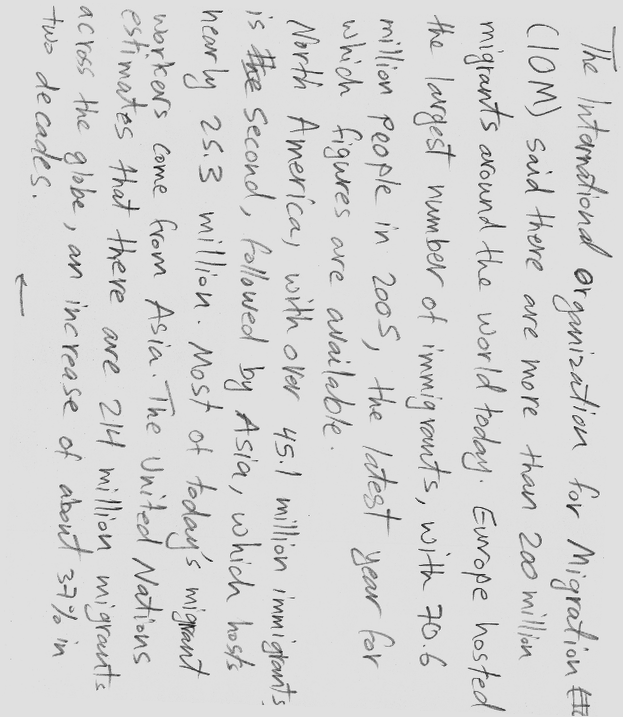 The International Organization for Migration
(IOM) said there are more than 200 million
migrants around the world today. Europe hosted
the largest number of immigrants, with 70.6
million people in 2005, the latest year for
which figures are available.
North America, with over 45.1 million immigrants
is the second, followed by Asia, which hosts
nearly 25.3 million. Most of today's migrant
workers come from Asia. The United Nations
estimates that there are 214 million migrants
across the globe, an increase of about 37% in
two decades.